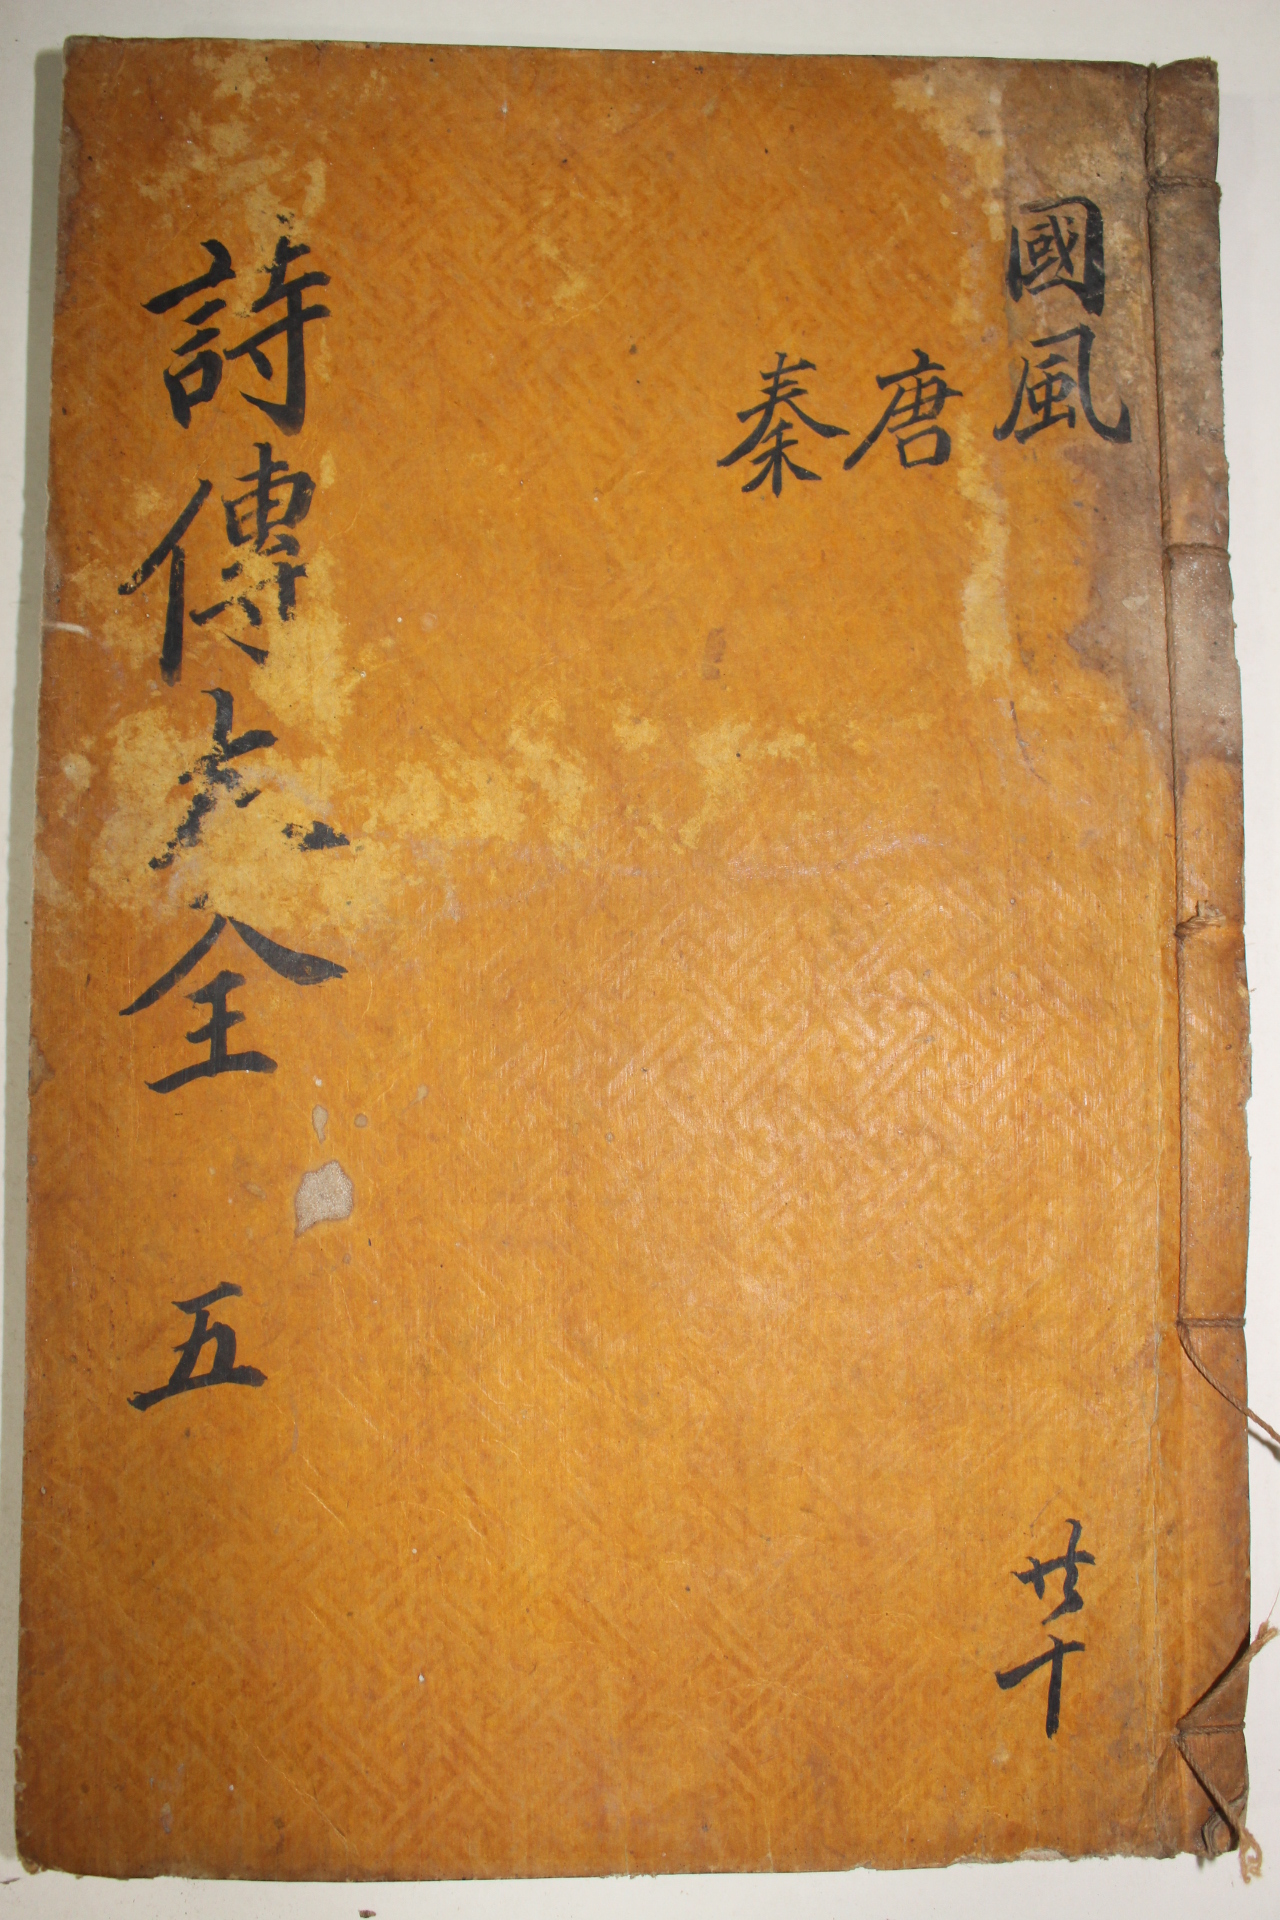 國風
共十
唐
秦
詩傳大全 五